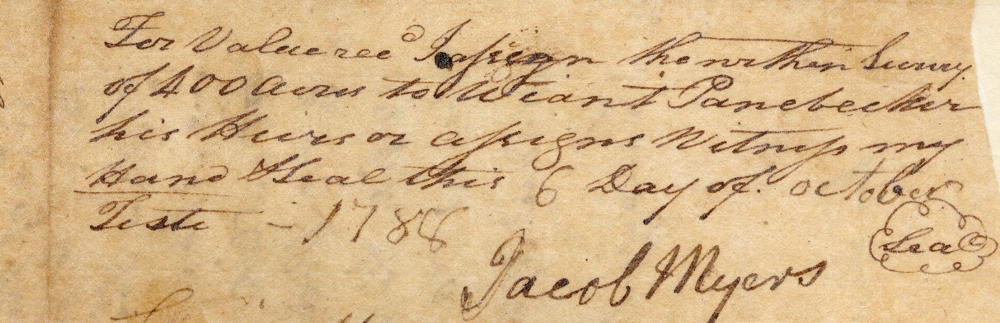 For Value rec'd I assign the within Survey
of 400 acres to Wiant Panebecker
his Heirs or assigns Witness my
Hand & Seal this 6 Day of October
Teste - 1788
Jacob Myers
Seal